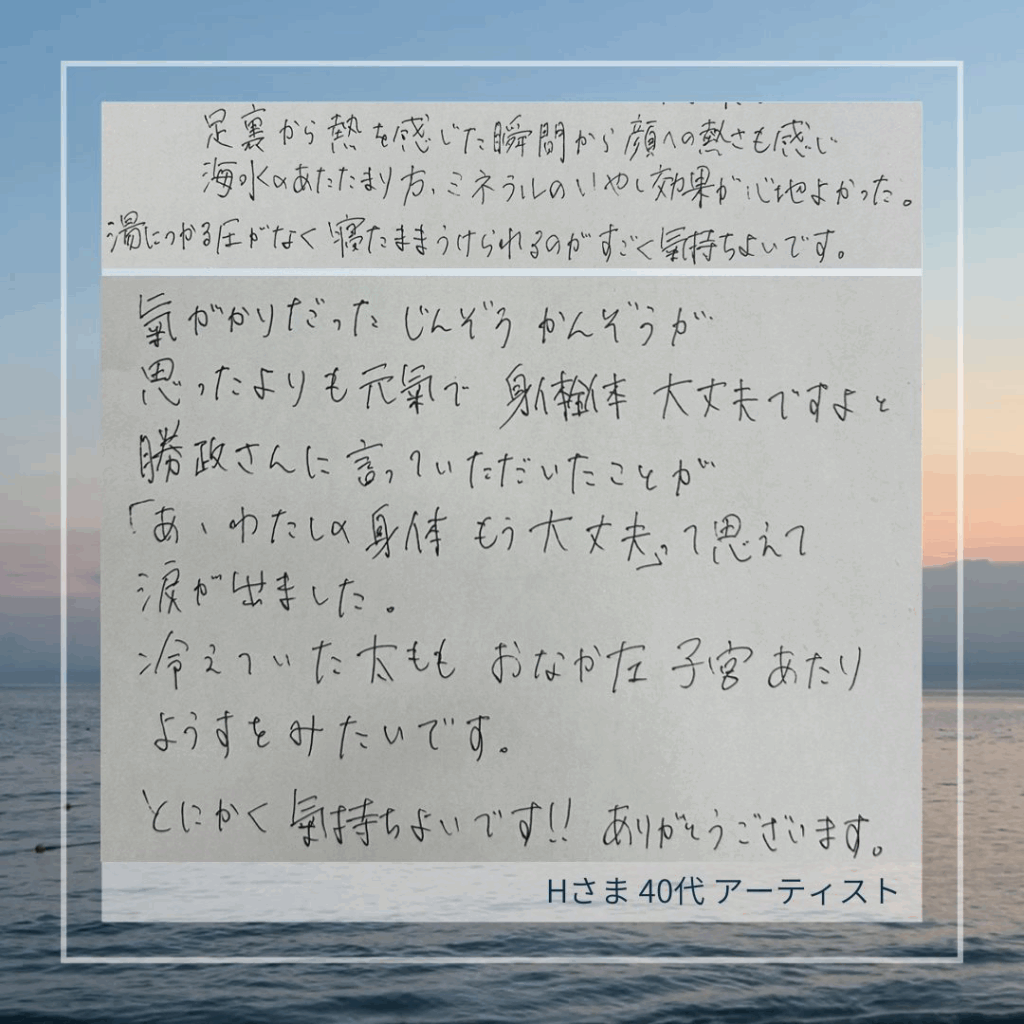 足裏から熱を感じた瞬間から顔への熱さも感じ
海水のあたたまり方、ミネラルのいやし効果が心地よかった。
湯につかる圧がなく寝たままうけられるのがすごく氣持ちよいです。
氣がかりだった じんぞう かんぞうが
思ったよりも元氣で 身体 大丈夫ですよと
勝政さんに言っていただいたことが
「あ、わたしの身体 もう大丈夫」って思えて
涙が出ました。
冷えていた太もも おなか左 子宮あたり
ようすをみたいです。
とにかく氣持ちよいです!! ありがとうございます。
Hさま 40代 アーティスト